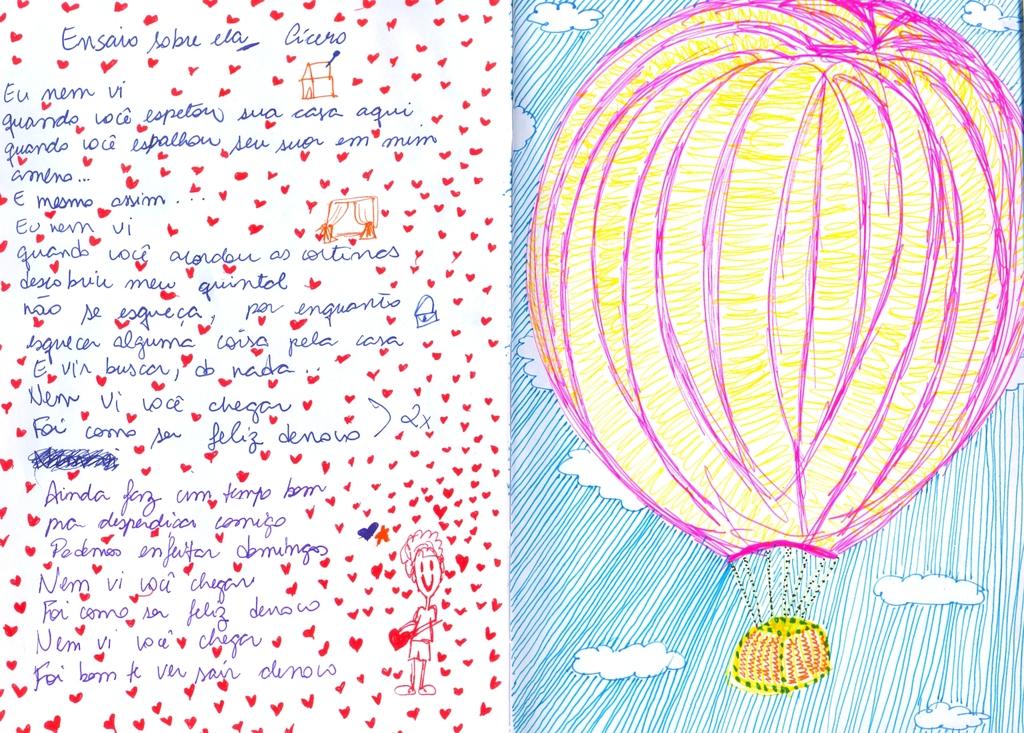 Ensaio sobre ela Cícero
Eu nem vi
quando você espetou sua casa aqui
quando você espalhou seu suor em mim
ameno...
E mesmo assim...
Eu nem vi
quando você acordou as cortinas
descobriu meu quintal
não se esqueça, por enquanto
esquecer alguma coisa pela casa
E vir buscar, do nada...
Nem vi você chegar
Foi como ser feliz denovo 2x
Ainda faz um tempo bom
pra desperdiçar comigo
Podemos enfeitar domingos
Nem vi você chegar
Foi como ser feliz denovo
Nem vi você chegar
Foi bom te ver sair denovo